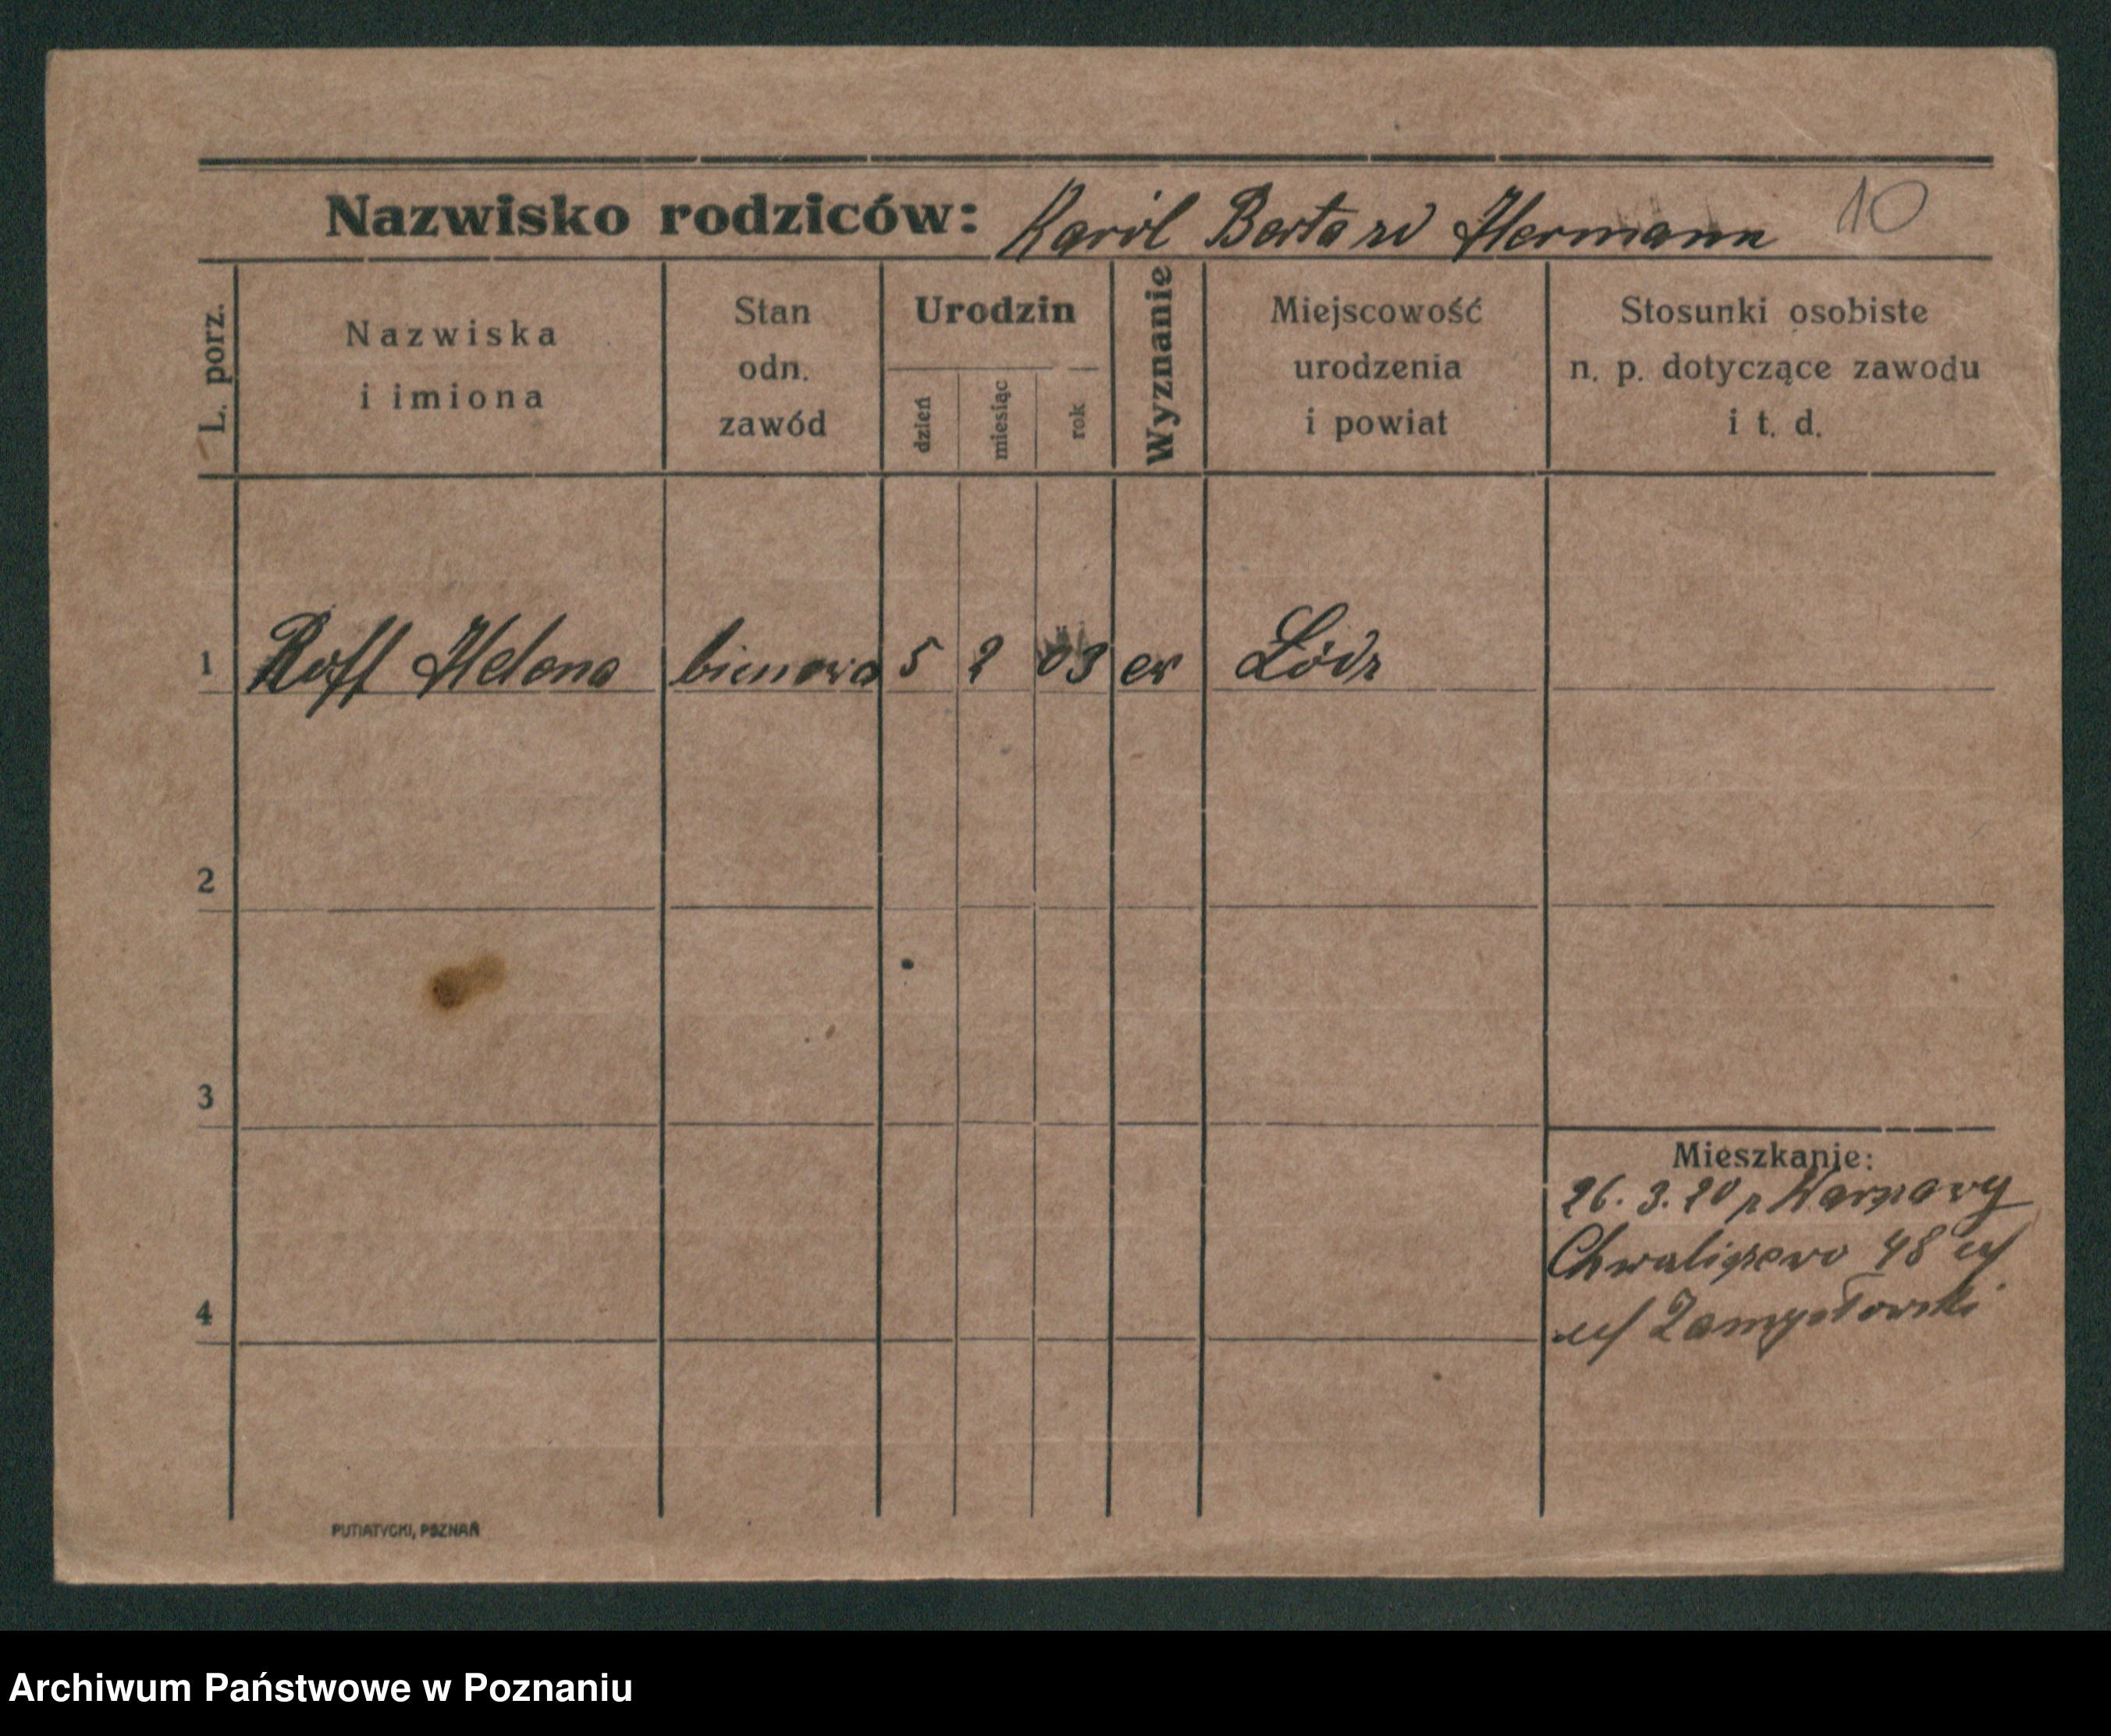 Nazwisko rodziców: Karól Berta zd Hermann 10
L. porz.
Nazwiska i imiona
Stan odn. zawód
Urodzin
dzień
miesiąc
rok
Wyznanie
Miejscowość urodzenia i powiat
Stosunki osobiste n. p. dotyczące zawodu i t. d.
1 Roff Helena biurowa 5 2 03 ew Łódz
2
3
Mieszkanie:
26. 3. 20 z Warszawy
Chwaliszewo 48
4
Zamysłowski
PUTIATYCKI, POZNAŃ
Archiwum Państwowe w Poznaniu